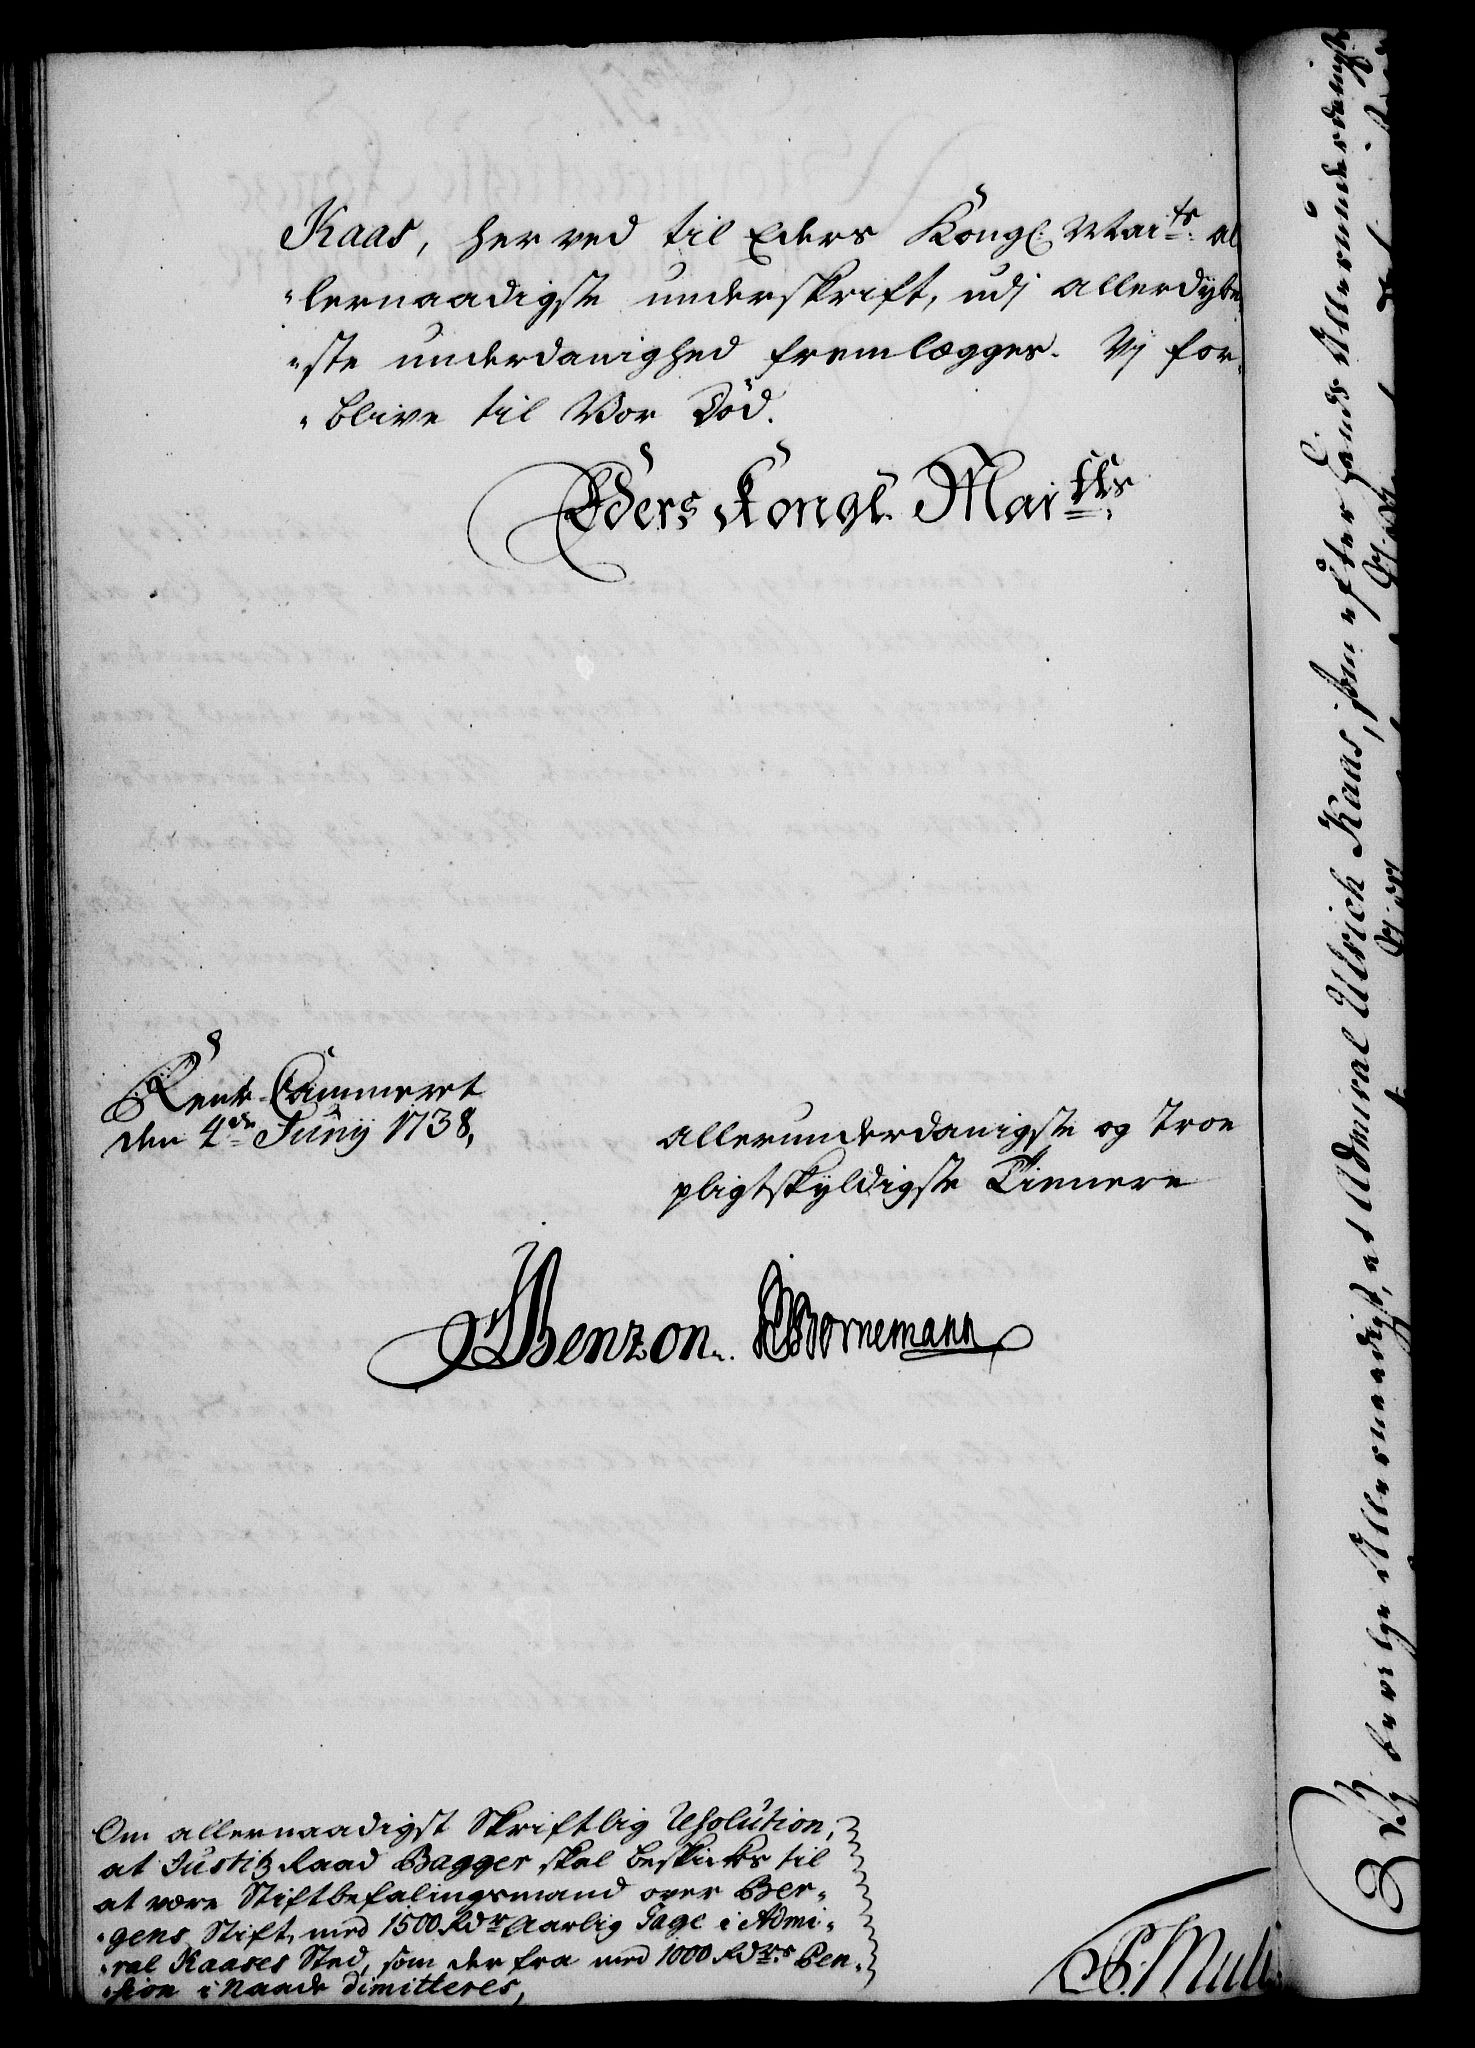 Kaas, her ved til Eders Kongl. Maits al
"lernaadigste underskrift, udj allerdybe
"ste underdanighed fremlægges. Vj for-
"blive til Vor Död.
Eders Kongl. Maitts
Rente-Cammeret
den 4de Junij 1738,
allerunderdanigste og troe
pligtskyldigste Tienere
Benzon. Bornemann
Om allernaadigst Skriftlig Resolution,
at Justitz Raad Bagger skal beskickes til
at være Stiftbefalingsmand over Ber-
"gens Stift, med 1500 Rdr Aarlig Gage i Admi-
"ral Kaases Sted, som der fra med 1000 Rdrs Pen-
"sion i Naade dimitteres,
Vj bevilge Allernaadigst, at Admiral Ulrich Kaas, som efter hands Allerunderdanigste